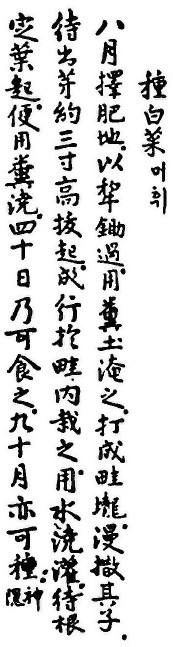 種白菜머휘
八月擇肥地.以犂鋤過.用糞土淹之.打成畦壠.漫撒其子.
待出芽約三寸高.拔起.成行於畦內栽之.用水澆灌.待根
定葉起.便用糞澆.四十日乃可食之.九十月亦可種.神隱